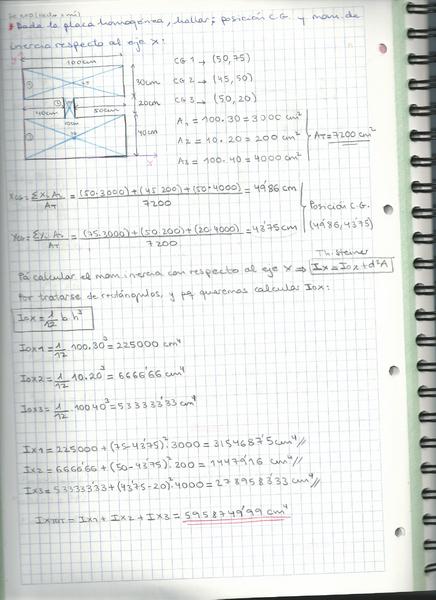 * Dada la placa homogénea, hallar; posición C.G. y mom. de
inercia respecto al eje x:
100cm
30cm
20cm
40cm
40cm
50cm
10cm
x
CG 1 → (50, 75)
CG 2 → (45, 50)
CG 3 → (50, 20)
A1 = 100·30 = 3000 cm²
A2 = 10·20 = 200 cm²
A3 = 100·40 = 4000 cm²
AT = 7200 cm²
XCG = ΣXi·Ai / AT = (50·3000)+(45·200)+(50·4000) / 7200 = 49'86 cm
YCG = ΣYi·Ai / AT = (75·3000)+(50·200)+(20·4000) / 7200 = 43'75 cm
Posición C.G.
(49'86, 43'75)
Th. Steiner
Pa calcular el mom. inercia con respecto al eje X ⇒ Ix = Iox + d²A
Por tratarse de rectángulos, y pq queremos calcular Iox:
Iox = 1/12 b h³
Iox1 = 1/12 · 100·30³ = 225000 cm⁴
Iox2 = 1/12 · 10·20³ = 6666'66 cm⁴
Iox3 = 1/12 · 100·40³ = 533333'33 cm⁴
Ix1 = 225000 + (75-43'75)²·3000 = 3154687'5 cm⁴
Ix2 = 6666'66 + (50-43'75)²·200 = 14479'16 cm⁴
Ix3 = 533333'33 + (43'75-20)²·4000 = 2789583'33 cm⁴
IxTOT = Ix1 + Ix2 + Ix3 = 5958749'99 cm⁴